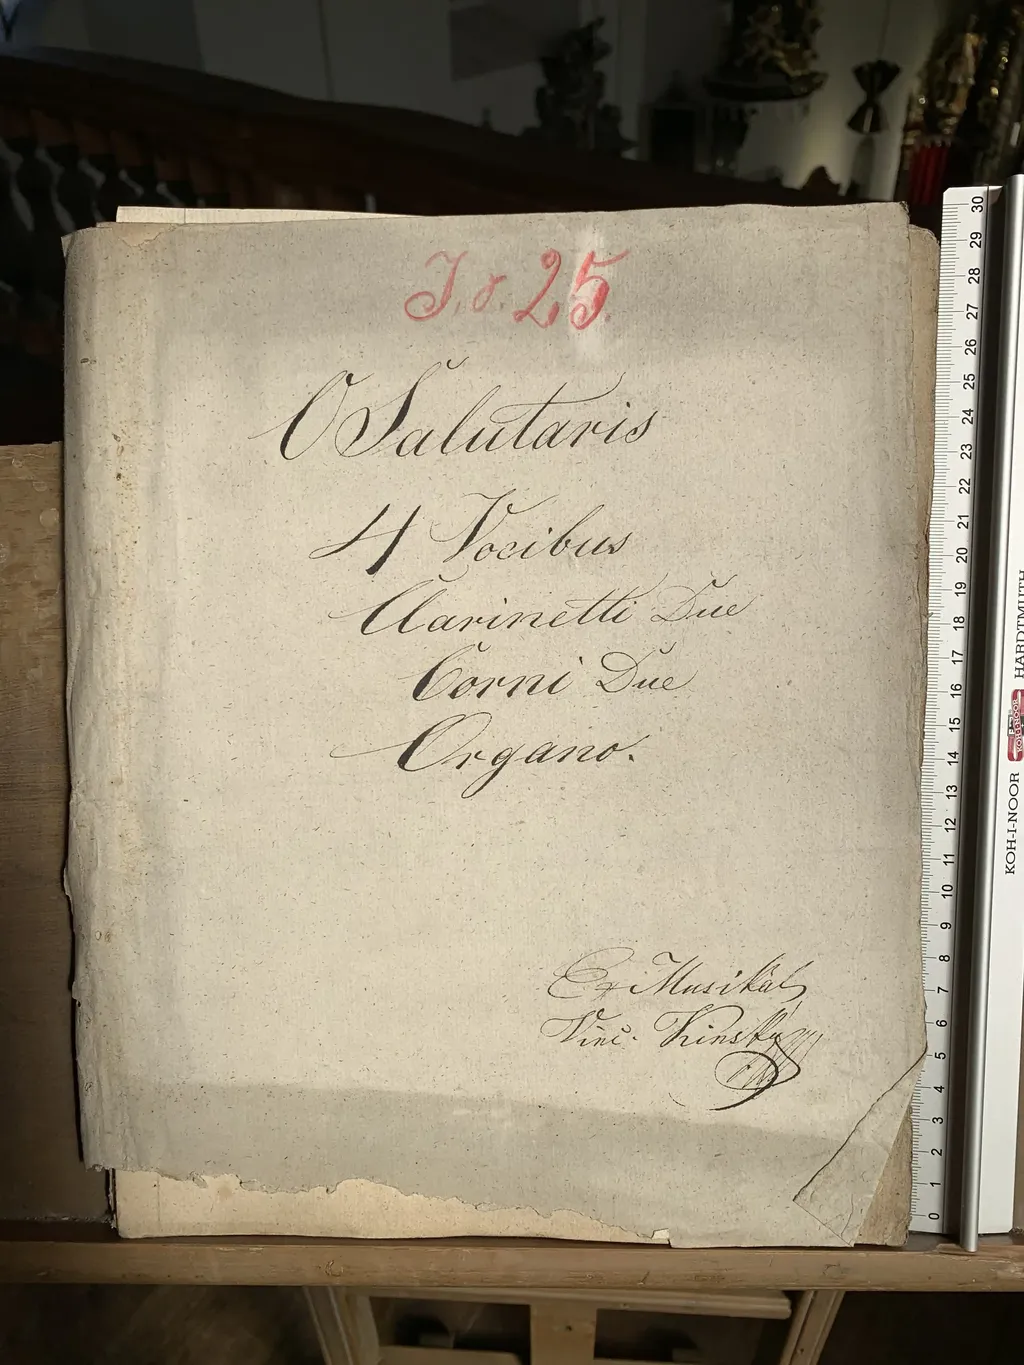 25.
O Salutaris
4 Vocibus
Clarinetti Due
Corni Due
Organo.
Ex Musikal
Vinc. Kinsky
30
29
28
27
26
25
24
23
22
21
20
19
18
17
16
15
14
13
12
11
10
9
8
7
6
5
4
3
2
1
0
KOH-I-NOOR HARDTMUTH